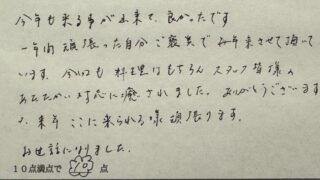 今年も来る事が出来て、良かったです
一年間頑張った自分ご褒美で毎年来させて頂いて
います。今回も料理はもちろんスタッフ皆様の
あたたかい対応に癒されました。ありがとうございます
又、来年ここに来られる様頑張ります。
お世話になりました。
10点満点で 点